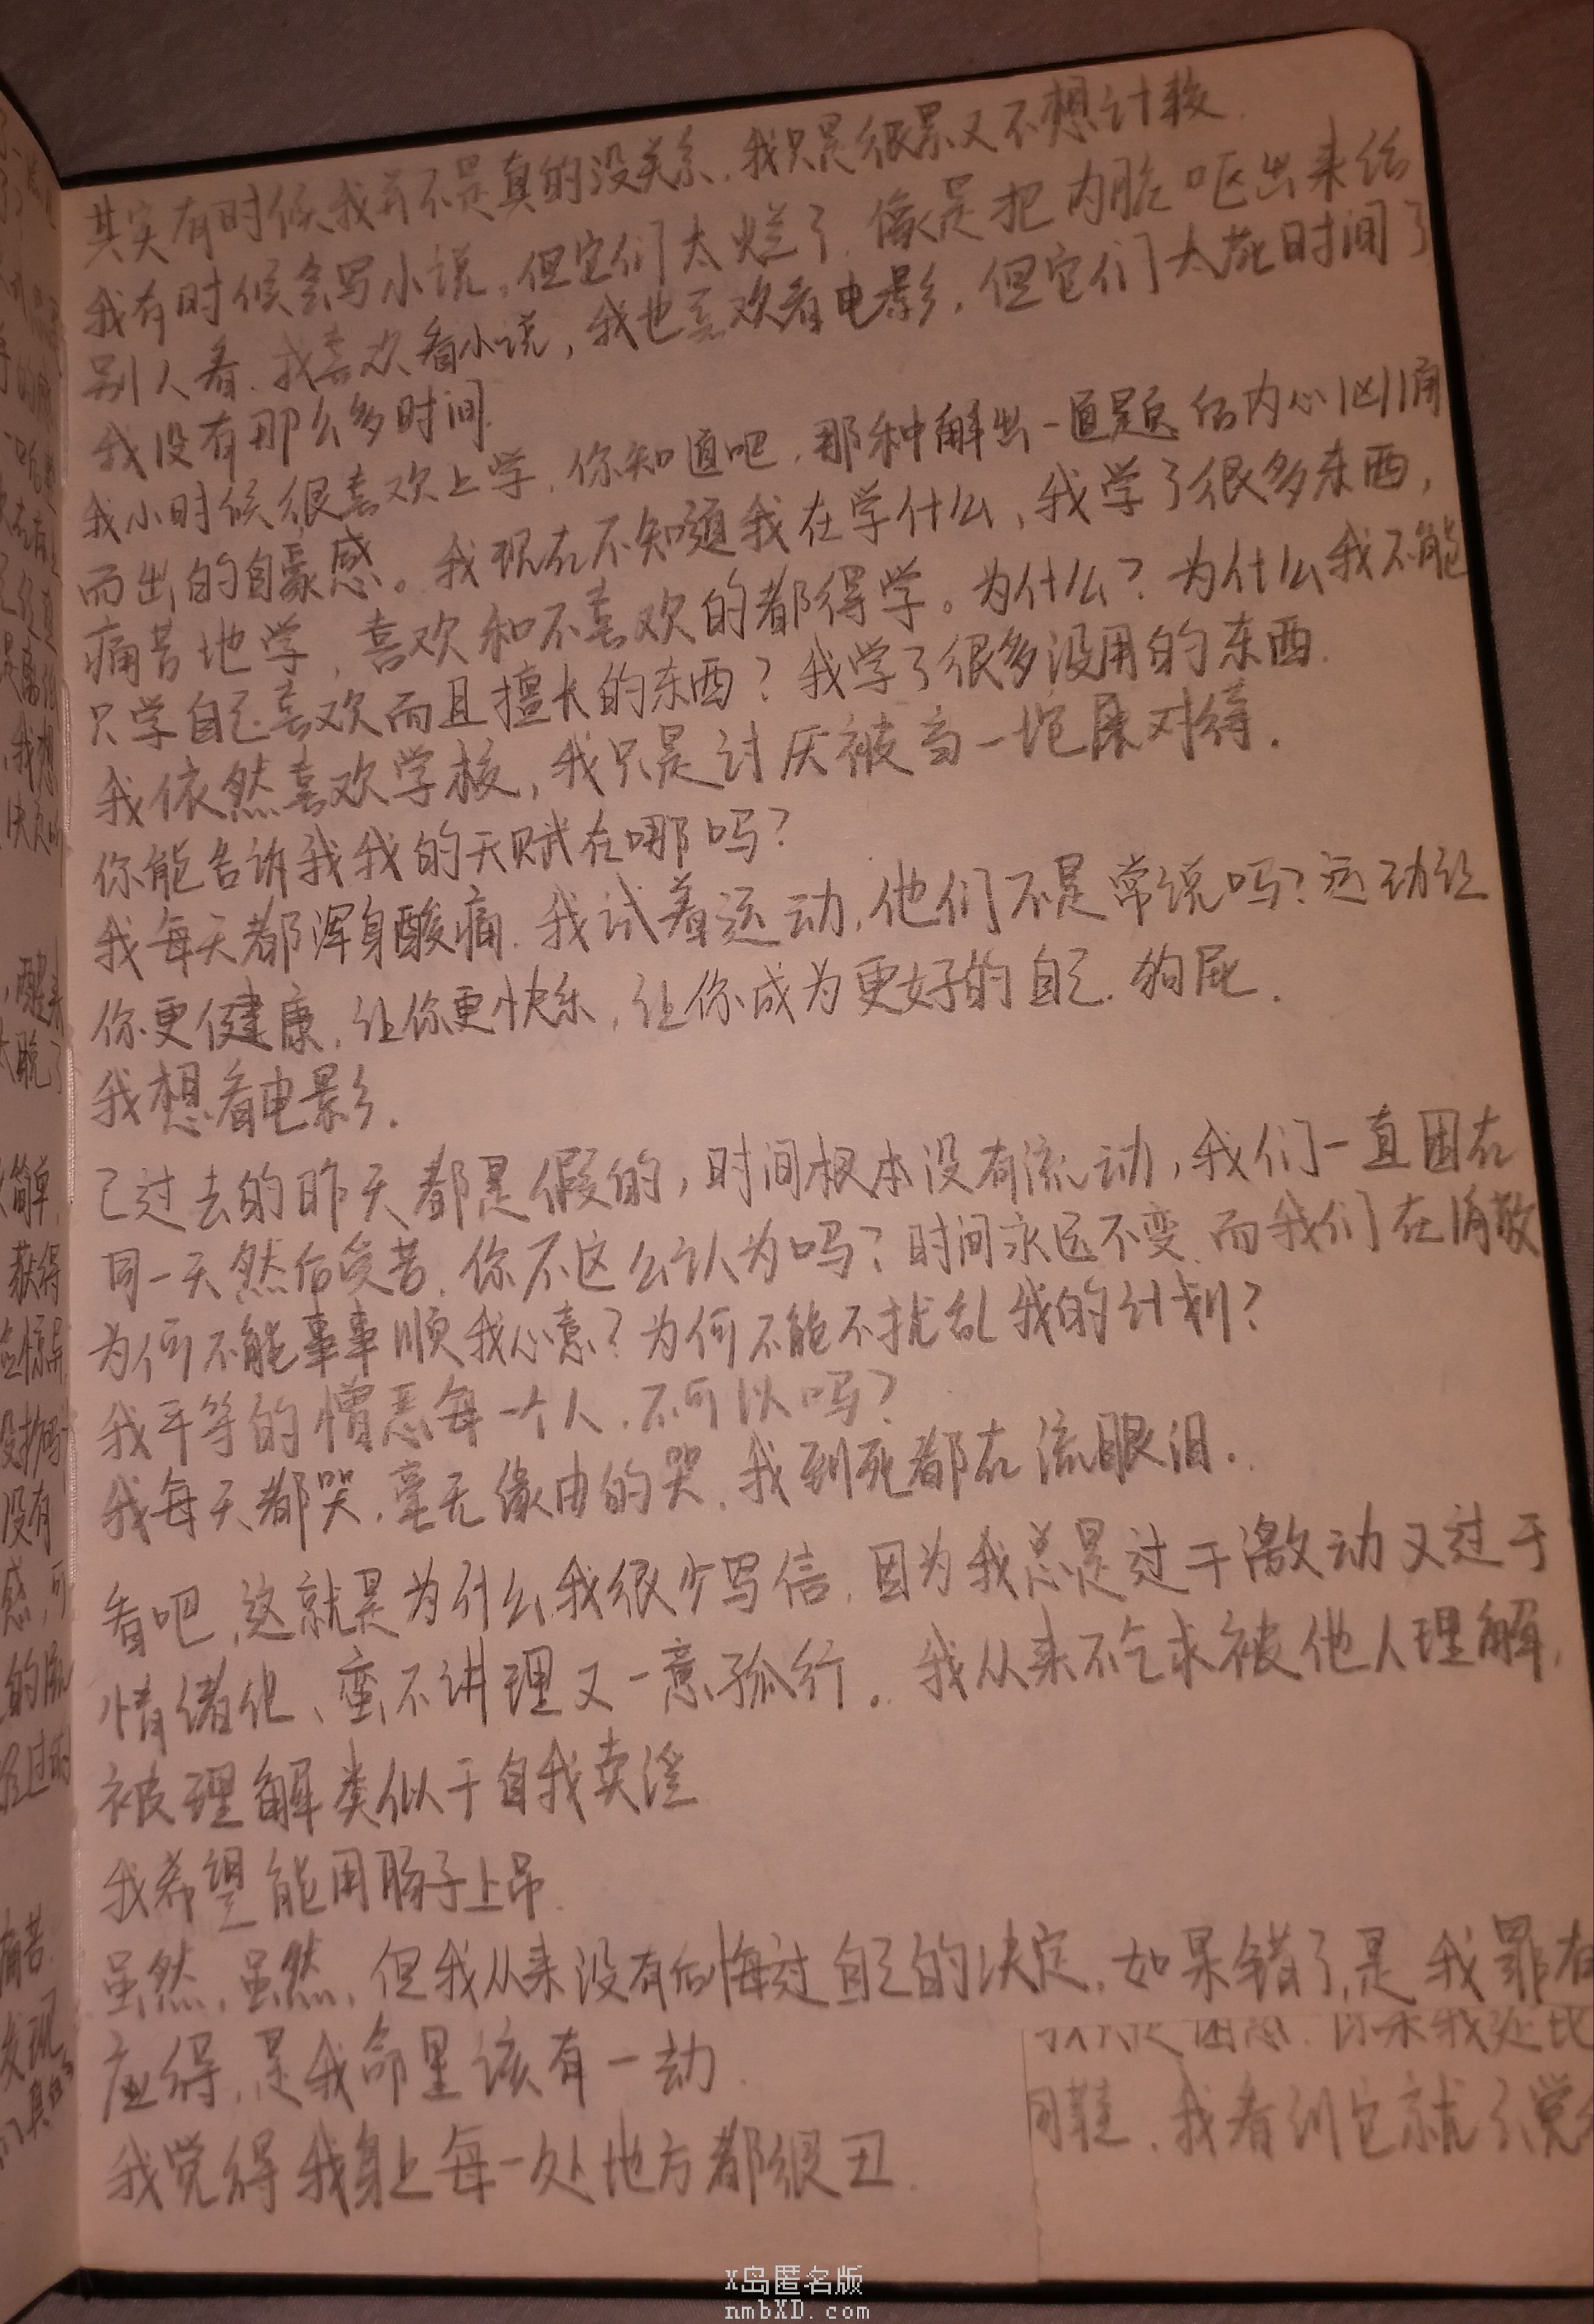 其实有时候我并不是真的没关系.我只是很累又不想计较.
我有时候会写小说。但它们太烂了.像是把内脏呕出来给
别人看.我喜欢看小说,我也喜欢看电影.但它们太花时间了
我没有那么多时间.
我小时候很喜欢上学.你知道吧.那种解出一道题后内心汹涌
而出的自豪感。我现在不知道我在学什么,我学了很多东西,
痛苦地学,喜欢和不喜欢的都得学。为什么?为什么我不能
只学自己喜欢而且擅长的东西?我学了很多没用的东西.
我依然喜欢学校,我只是讨厌被当一坨屎对待.
你能告诉我我的天赋在哪吗?
我每天都浑身酸痛.我试着运动.他们不是常说吗?运动让
你更健康.让你更快乐,让你成为更好的自己.狗屁.
我想看电影.
已过去的昨天都是假的,时间根本没有流动,我们一直困在
同一天然后受苦.你不这么认为吗?时间永远不变.而我们在消散
为何不能事事顺我心意?为何不能不扰乱我的计划?
我平等的憎恶每一个人.不可以吗?
我每天都哭.毫无缘由的哭.我到死都在流眼泪.
看吧,这就是为什么我很少写信.因为我总是过于激动又过于
情绪化、蛮不讲理又一意孤行。我从来不乞求被他人理解,
被理解类似于自我卖淫
我希望能用肠子上吊.
虽然,虽然,但我从来没有后悔过自己的决定.如果错了,是我罪有
应得,是我命里该有一劫.
我觉得我身上每一处地方都很丑.
我看到它就
X岛匿名版
nmbXD.com